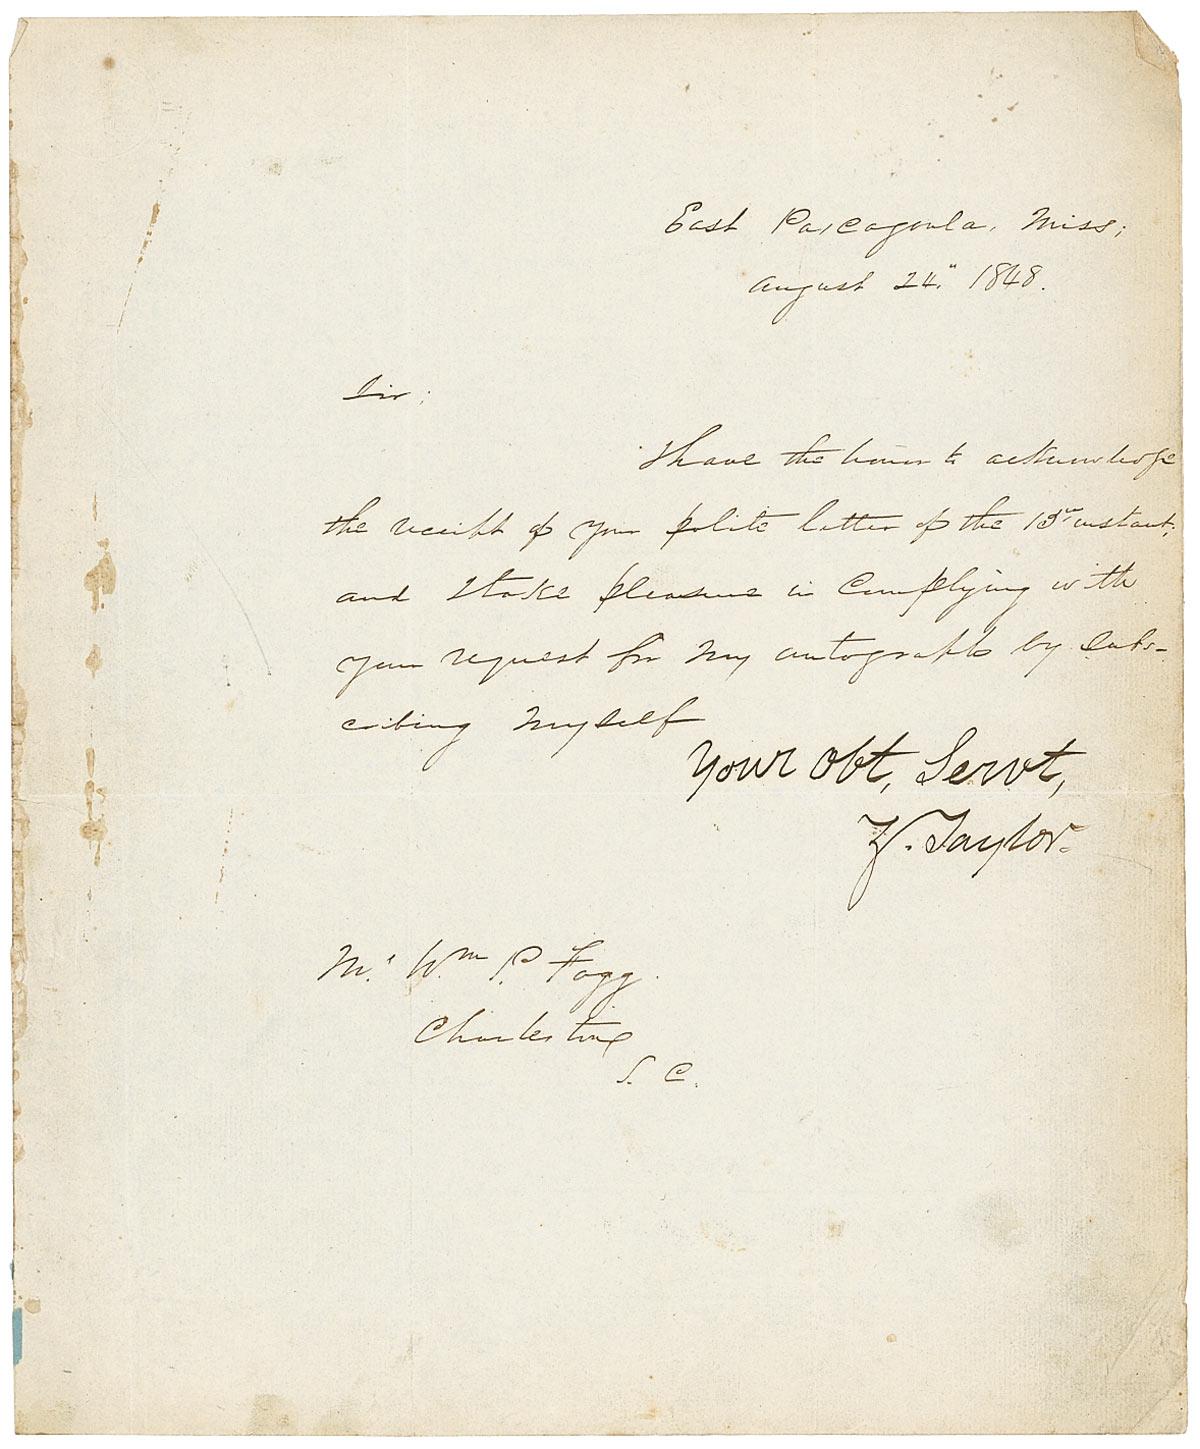 East Pascagoula, Miss;
August 24" 1848.
Sir;
I have the honor to acknowledge
the receipt of your polite letter of the 13th instant;
and I take pleasure in complying with
your request for my autograph by subs-
cribing myself
Your Obt, Servt,
Z. Taylor.
Mr. Wm P. Fogg.
Charleston
S. C.